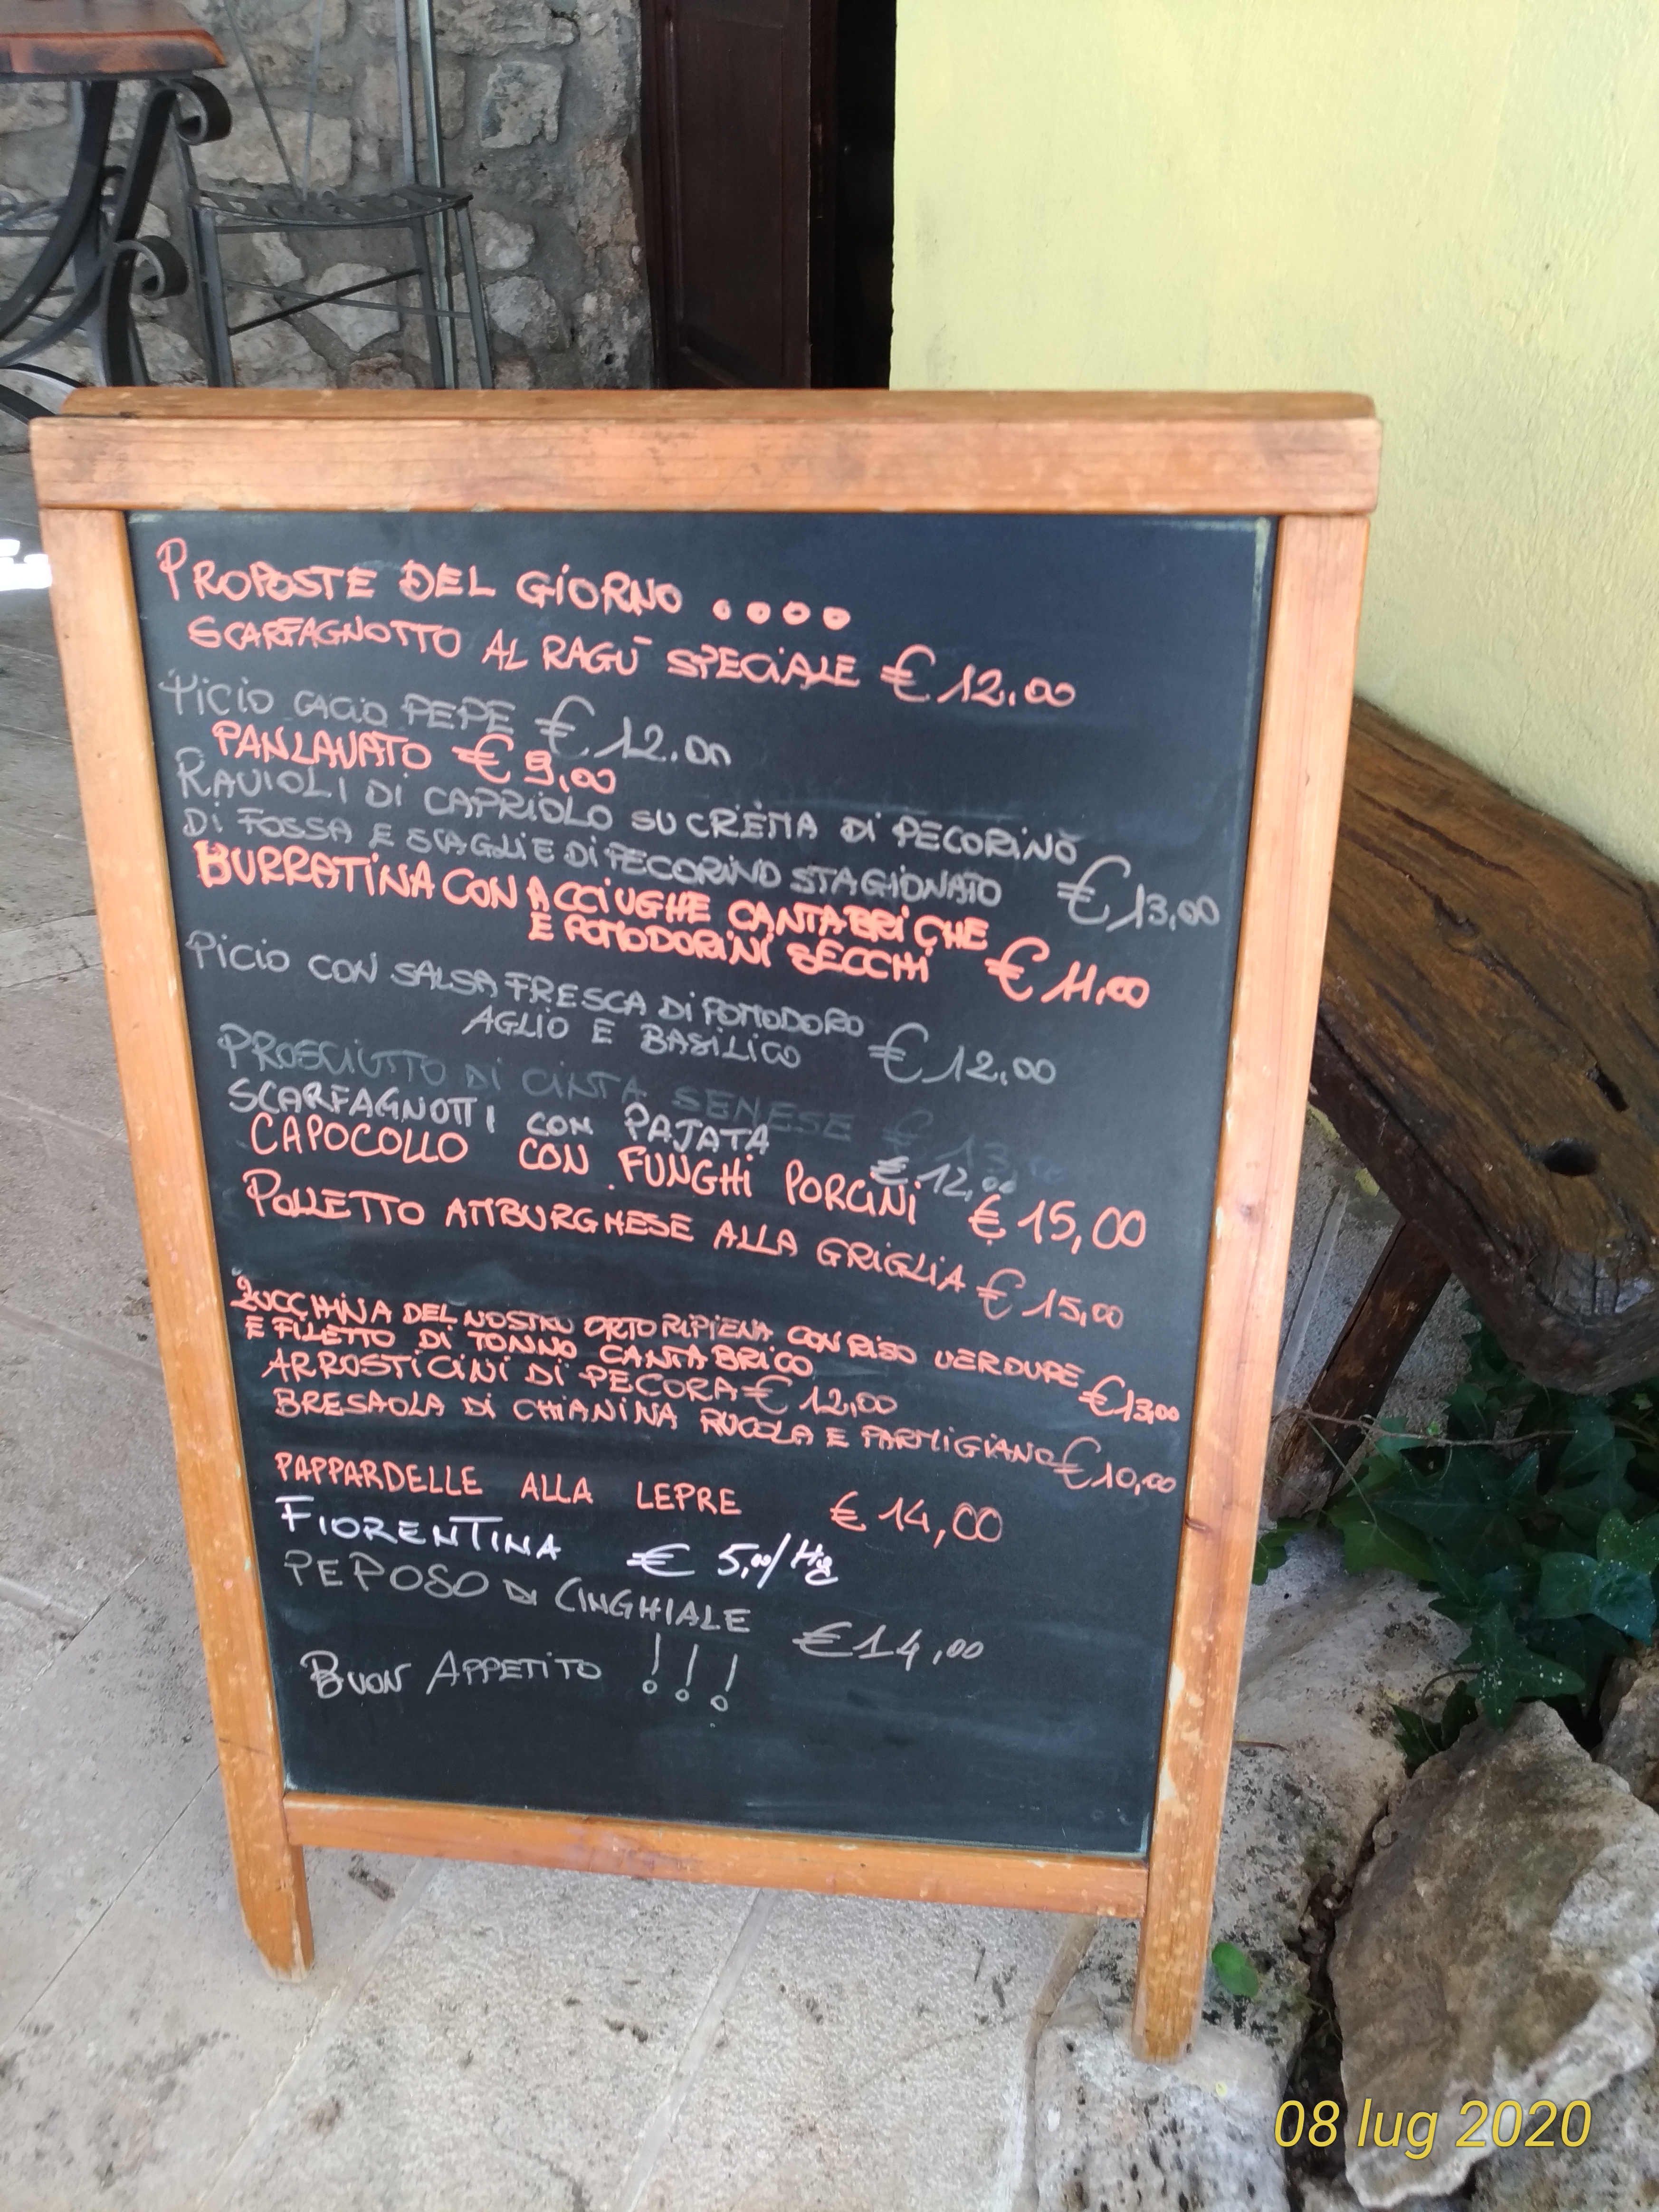 PROPOSTE DEL GIORNO ....
SCARFAGNOTTO AL RAGÙ SPECIALE € 12.00
PICIO CACIO PEPE € 12.00
PANLAVATO € 9,00
RAVIOLI DI CAPRIOLO SU CREMA DI PECORINO
DI FOSSA E SCAGLIE DI PECORINO STAGIONATO € 13,00
BURRATINA CON ACCIUGHE CANTABRICHE
E POMODORINI SECCHI € 11,00
PICIO CON SALSA FRESCA DI POMODORO
AGLIO E BASILICO € 12,00
PROSCIUTTO DI CINTA SENESE € 13,00
SCARFAGNOTTI CON PAJATA € 12,00
CAPOCOLLO CON FUNGHI PORCINI € 15,00
POLLETTO AMBURGHESE ALLA GRIGLIA € 15,00
ZUCCHINA DEL NOSTRO ORTO RIPIENA CON RISO VERDURE
E FILETTO DI TONNO CANTABRICO € 13,00
ARROSTICINI DI PECORA € 12,00
BRESAOLA DI CHIANINA RUCOLA E PARMIGIANO € 10,00
PAPPARDELLE ALLA LEPRE € 14,00
FIORENTINA € 5,00/Hg
PEPOSO DI CINGHIALE € 14,00
BUON APPETITO !!!
08 lug 2020